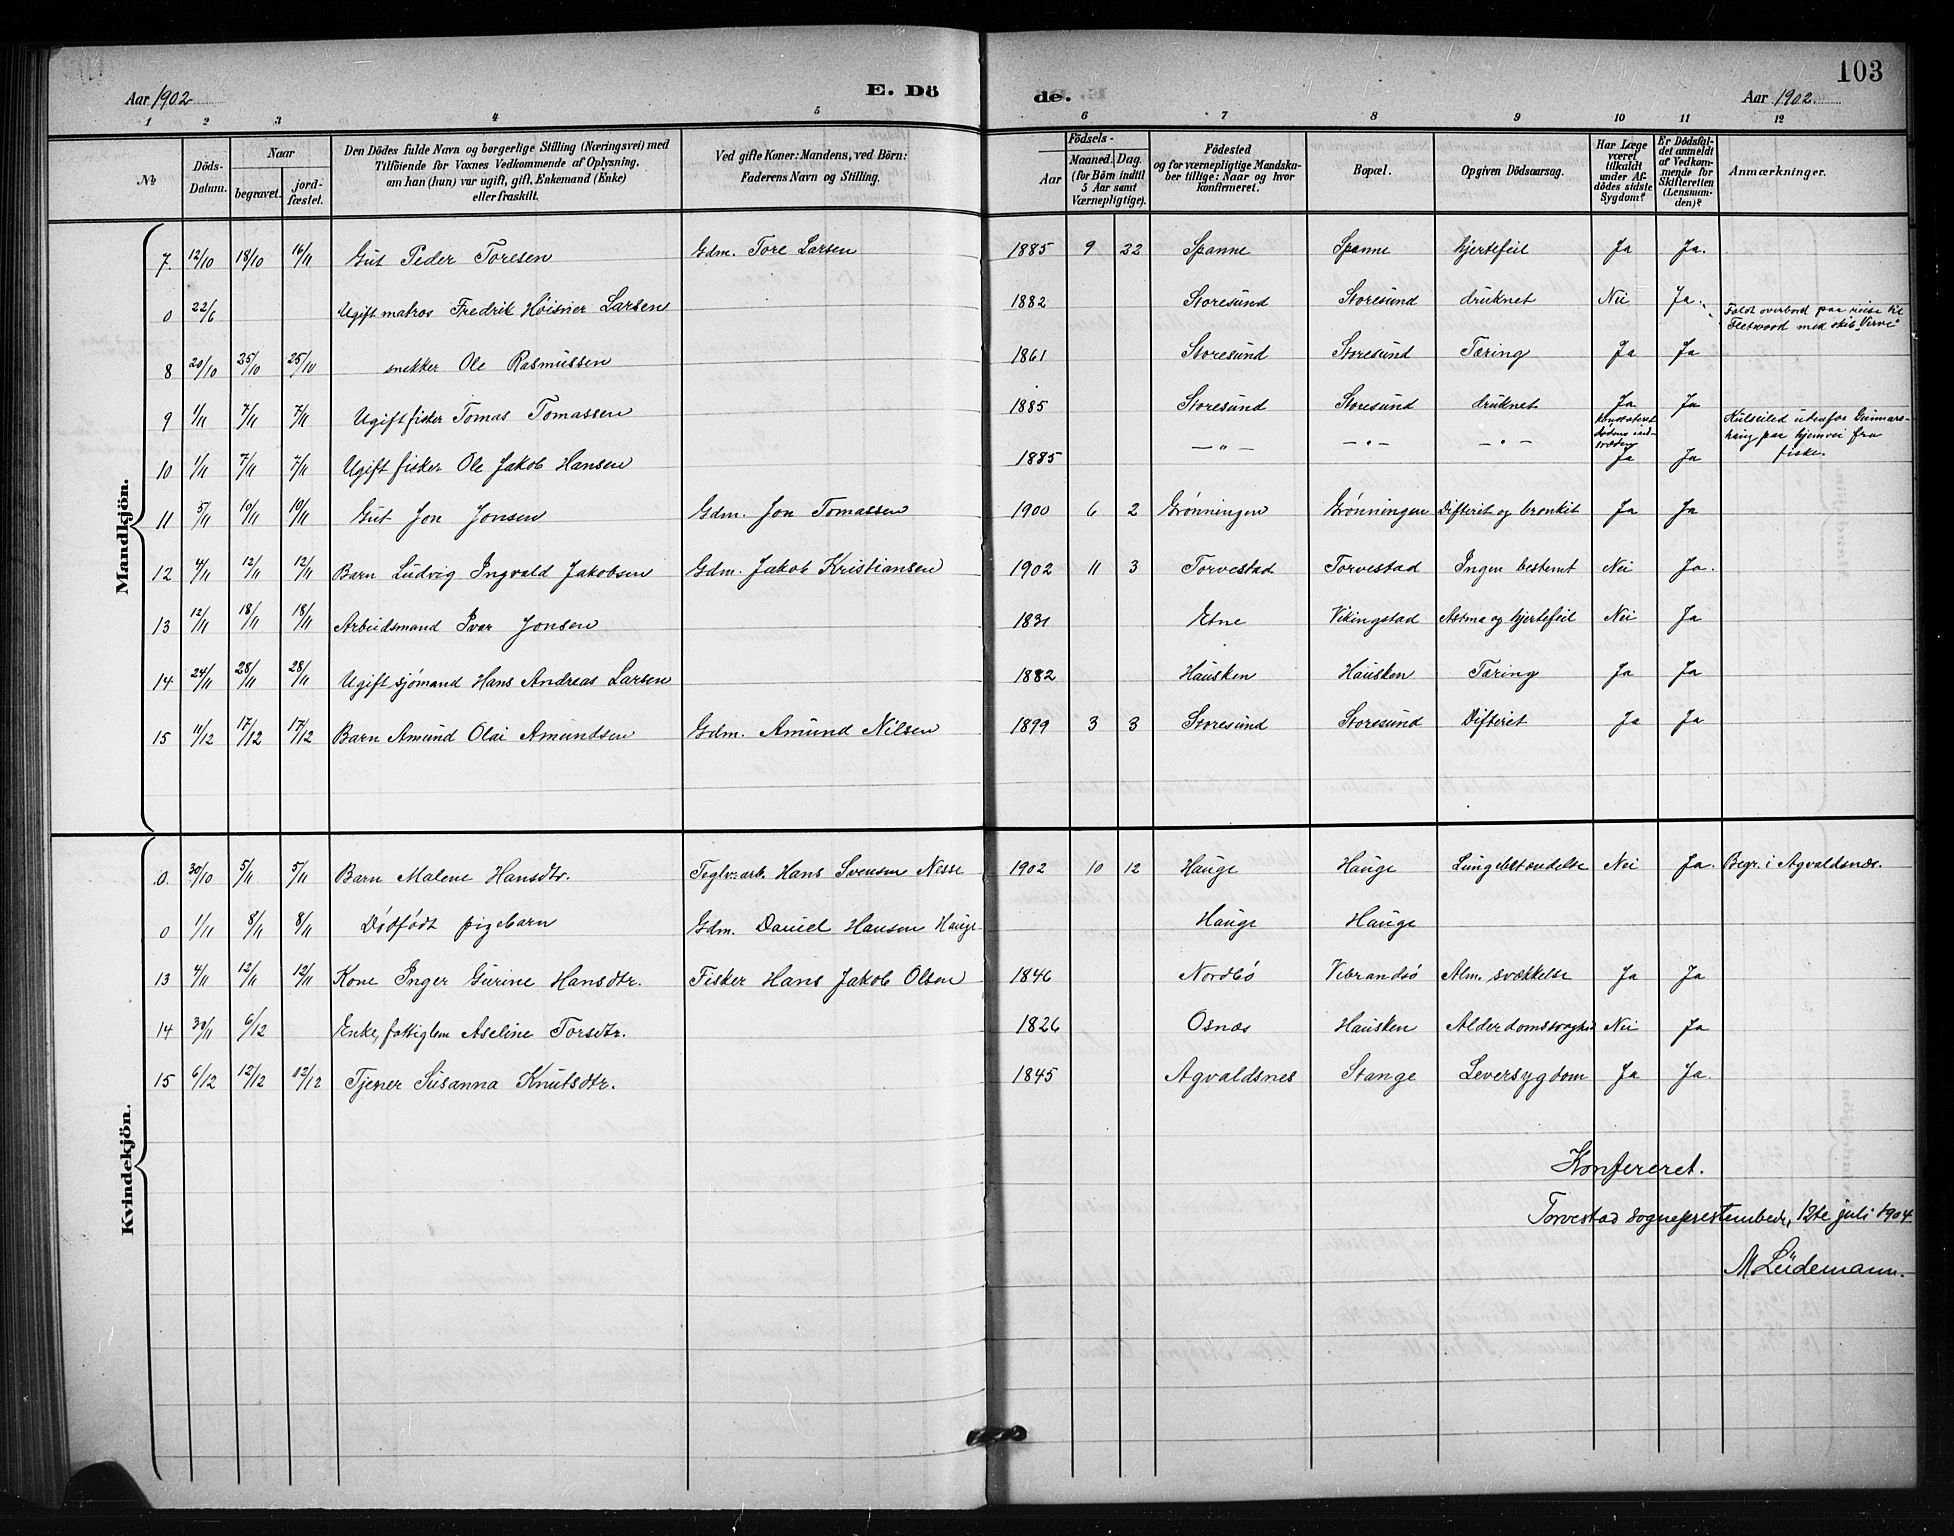 103
Aar 1902 E. Dö de. Aar 1902.
1 2 3 4 5 6 7 8 9 10 11 12
№
Döds-Datum.
Naar
begravet.
jordfæstet.
Den Dödes fulde Navn og borgerlige Stilling (Næringsvei) med
Tilföiende for Voxnes Vedkommende af Oplysning,
om han (hun) var ugift, gift, Enkemand (Enke)
eller fraskilt.
Ved gifte Koner: Mandens, ved Börn:
Faderens Navn og Stilling.
Födsels-
Aar
Maaned. Dag.
(for Börn indtil
5 Aar samt
Værnepligtige).
Födested
og for værnepligtige Mandska-
ber tillige: Naar og hvor
konfirmeret.
Bopæl.
Opgiven Dödsaarsag.
Har Læge
været
tilkaldt
under Af-
dödes sidste
Sygdom?
Er Dödsfal-
det anmeldt
af Vedkom-
mende for
Skifteretten
(Lensman-
den)?
Anmærkninger.
Mandkjön.
7. 12/10 18/10 16/11 Gut Peder Toresen Gdm. Tore Larsen 1885 9 22 Spanne Spanne hjertefeil Ja Ja.
0 22/6 Ugift matros Fredrik Høisner Larsen 1882 Storesund Storesund druknet Nei Ja. Faldt overbord paa reise til
Fleetwood med skib "Verve"
8 20/10 25/10 25/10 snekker Ole Rasmussen 1861 Storesund Storesund Tæring Ja Ja
9 1/11 7/11 7/11 Ugift fisker Tomas Tomassen 1885 Storesund Storesund druknet Ja Ja
konstateret
dødens ind-
træden
Kulseiled udenfor Gunnars-
haug paa hjemvei fra
fiske.
10 1/11 7/11 7/11 Ugift fisker Ole Jakob Hansen 1885 — " — — " — — " — Ja Ja
11 5/11 10/11 10/11 Gut Jon Jonsen Gdm. Jon Tomassen 1900 6 2 Grønningen Grønningen Difterit og bronkit Ja Ja
12 4/11 12/11 12/11 Barn Ludvig Ingvald Jakobsen Gdm. Jakob Kristiansen 1902 11 3 Torvestad Torvestad Ingen bestemt Nei Ja.
13 12/11 18/11 18/11 Arbeidsmand Ivar Jonsen 1831 Etne Vikingstad Astma og hjertefeil Nei Ja
14 24/11 28/11 28/11 Ugift sjømand Hans Andreas Larsen 1882 Hausken Hausken Tæring Ja Ja
15 11/12 17/12 17/12 Barn Amund Olai Amundsen Gdm. Amund Nilsen 1899 3 3 Storesund Storesund Difterit Ja Ja
Kvindekjön.
0. 30/10 5/11 5/11 Barn Malene Hansdtr. Teglv:arb. Hans Svensen Nesse 1902 10 12 Hauge Hauge Lungebetændelse Nei Ja. Begr. i Agvaldsnæs.
0 1/11 8/11 8/11 Dødfødt pigebarn Gdm. Daniel Hansen Hauge Hauge Hauge
13 4/11 12/11 12/11 Kone Inger Gurine Hansdtr. Fisker Hans Jakob Olsen 1846 Nordbø Vibrandsø Alm. svækkelse Ja Ja
14 30/11 6/12 Enke, fattiglem Aseline Torsdtr. 1826 Osnæs Hausken Alderdomssvaghed Nei Ja
15 6/12 12/12 12/12 Tjener Susanna Knutsdtr. 1845 Agvaldsnes Stange Leversygdom Ja Ja.
Konfereret.
Torvestad sogneprestembede, 12te juli 1904.
M. Lüdemann.